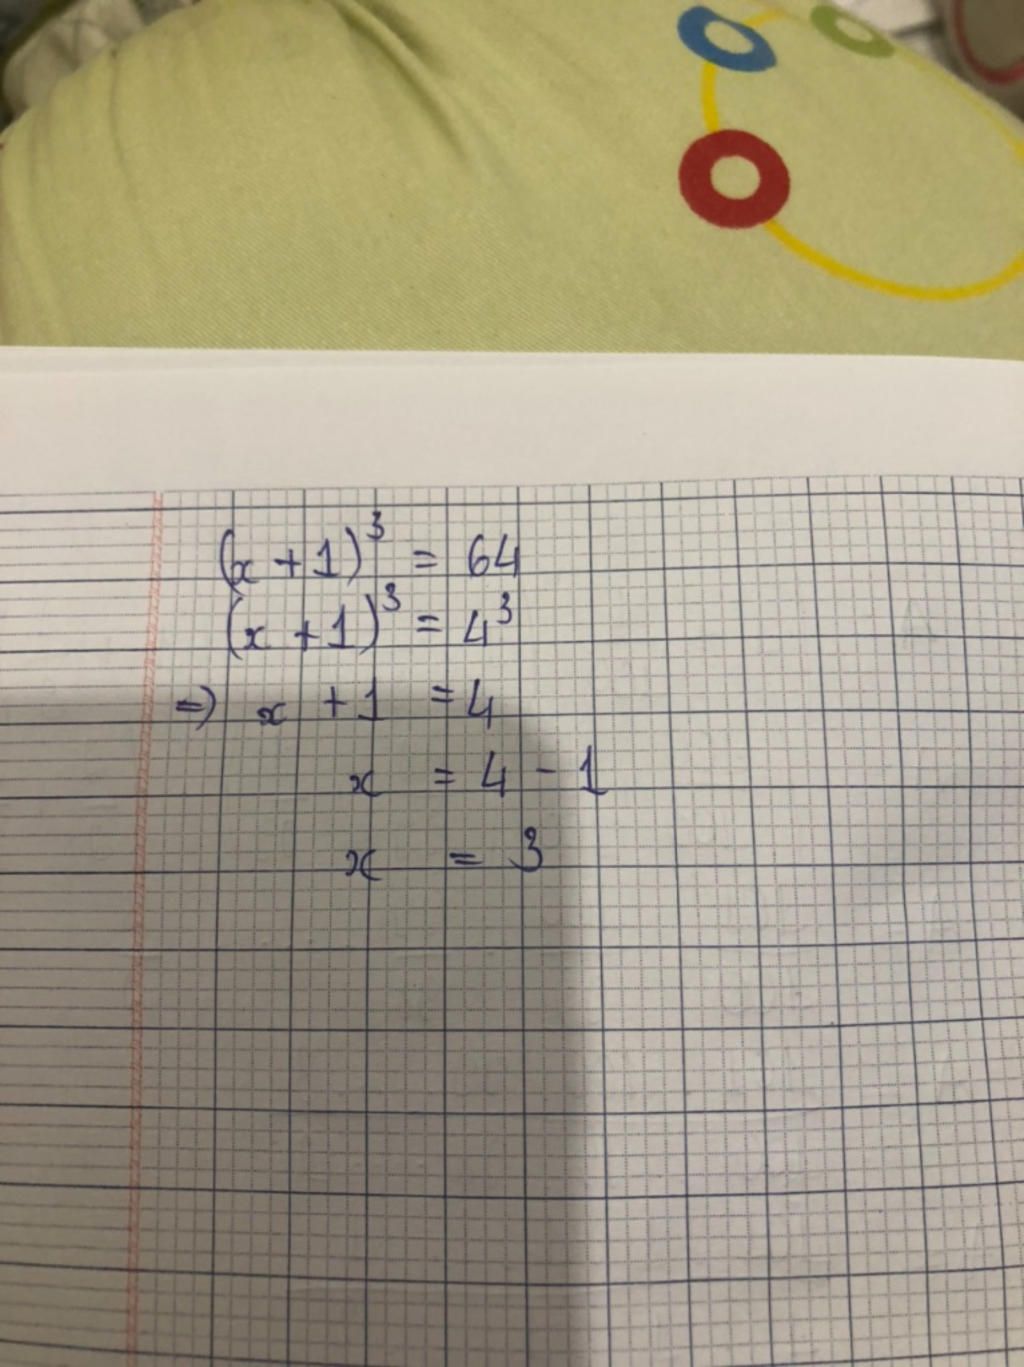 (x + 1)³ = 64
(x + 1)³ = 4³
⇒ x + 1 = 4
x = 4 - 1
x = 3